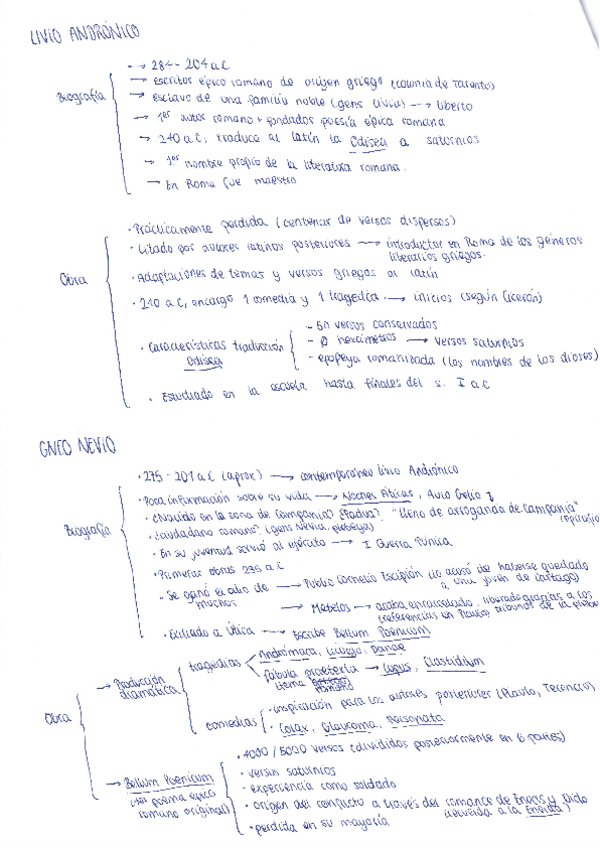 LIVIO ANDRÓNICO
Biografía
→ 284 - 204 a.C
→ escritor épico romano de origen griego (colonia de Tarento)
→ esclavo de una familia noble (gens Livia) → liberto
→ 1er autor romano + fundador poesía épica romana
→ 240 a.C, traduce al latín la Odisea a saturnios
→ 1er nombre propio de la literatura romana.
→ En Roma fue maestro
Obra
· Prácticamente perdida (centenar de versos dispersos)
· Citado por autores latinos posteriores → introductor en Roma de los géneros
literarios griegos.
· Adaptaciones de temas y versos griegos al latín
· 240 a.C, encargo 1 comedia y 1 tragedia → inicios (según Cicerón)
· Características traducción
Odisea
- 50 versos conservados
- Ø hexámetros → versos saturnios
- epopeya romanizada (los nombres de los dioses)
· Estudiado en la escuela hasta finales del s. I a.C
GNEO NEVIO
Biografía
· 275 - 201 a.C (aprox) → contemporáneo Livio Andrónico
· Poca información sobre su vida → Noches Áticas, Aulo Gelio
· ¿Nacido en la zona de Campania? ¿Padua? "lleno de arrogancia de Campania"
(epitafio)
· ¿ciudadano romano? (gens Nevia, plebeya)
· En su juventud sirvió al ejército → I Guerra Púnica
· Primeras obras 235 a.C
· Se ganó el odio de
muchos
→ Publio Cornelio Escipión (lo acosó de haberse quedado
a una joven de Cartago)
→ Metelos → acaba encarcelado, liberado gracias a los
(referencias en Plauto) tribunos de la plebe
· Exiliado a Útica → Escribe Bellum Poenicum
Obra
→ Producción
dramática
tragedias
Andrómaca, Licurgo, Danae
fábula praetexta → Lupus, Clastidium
(tema
romano)
comedias
· inspiración para los autores posteriores (Plauto, Terencio)
· Colax, Glaucoma, Personata
→ Bellum Poenicum
(1er poema épico
romano original)
· 4000 / 5000 versos (divididos posteriormente en 6 partes)
· versus saturnios
· experiencia como soldado
· origen del conflicto a través del romance de Eneas y Dido
(recuerda a la Eneida)
· perdida en su mayoría